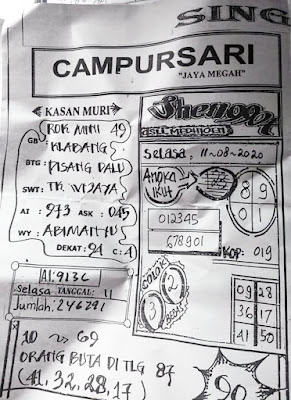 SING
CAMPURSARI
"JAYA MEGAH"
KASAN MURI
ROK MINI 49
GB: KLABANG
BTG: PISANG
SWT: TK. WIJAYA
AI : 973 ASK : 045
WY : ABIMANYU
DEKAT: 94 C: 4
Selasa TANGGAL: 11
Jumlah: 246791
10 69
ORANG BUTA DI TLG 87
(41, 32, 28, 17)
Shenoor
ASLI
Selasa, 11-08-2020
ANGKA IKUT
8 9
0 1
012345
678901
KOP: 019
COLOK
3 2
09 28
36 17
41 50
90